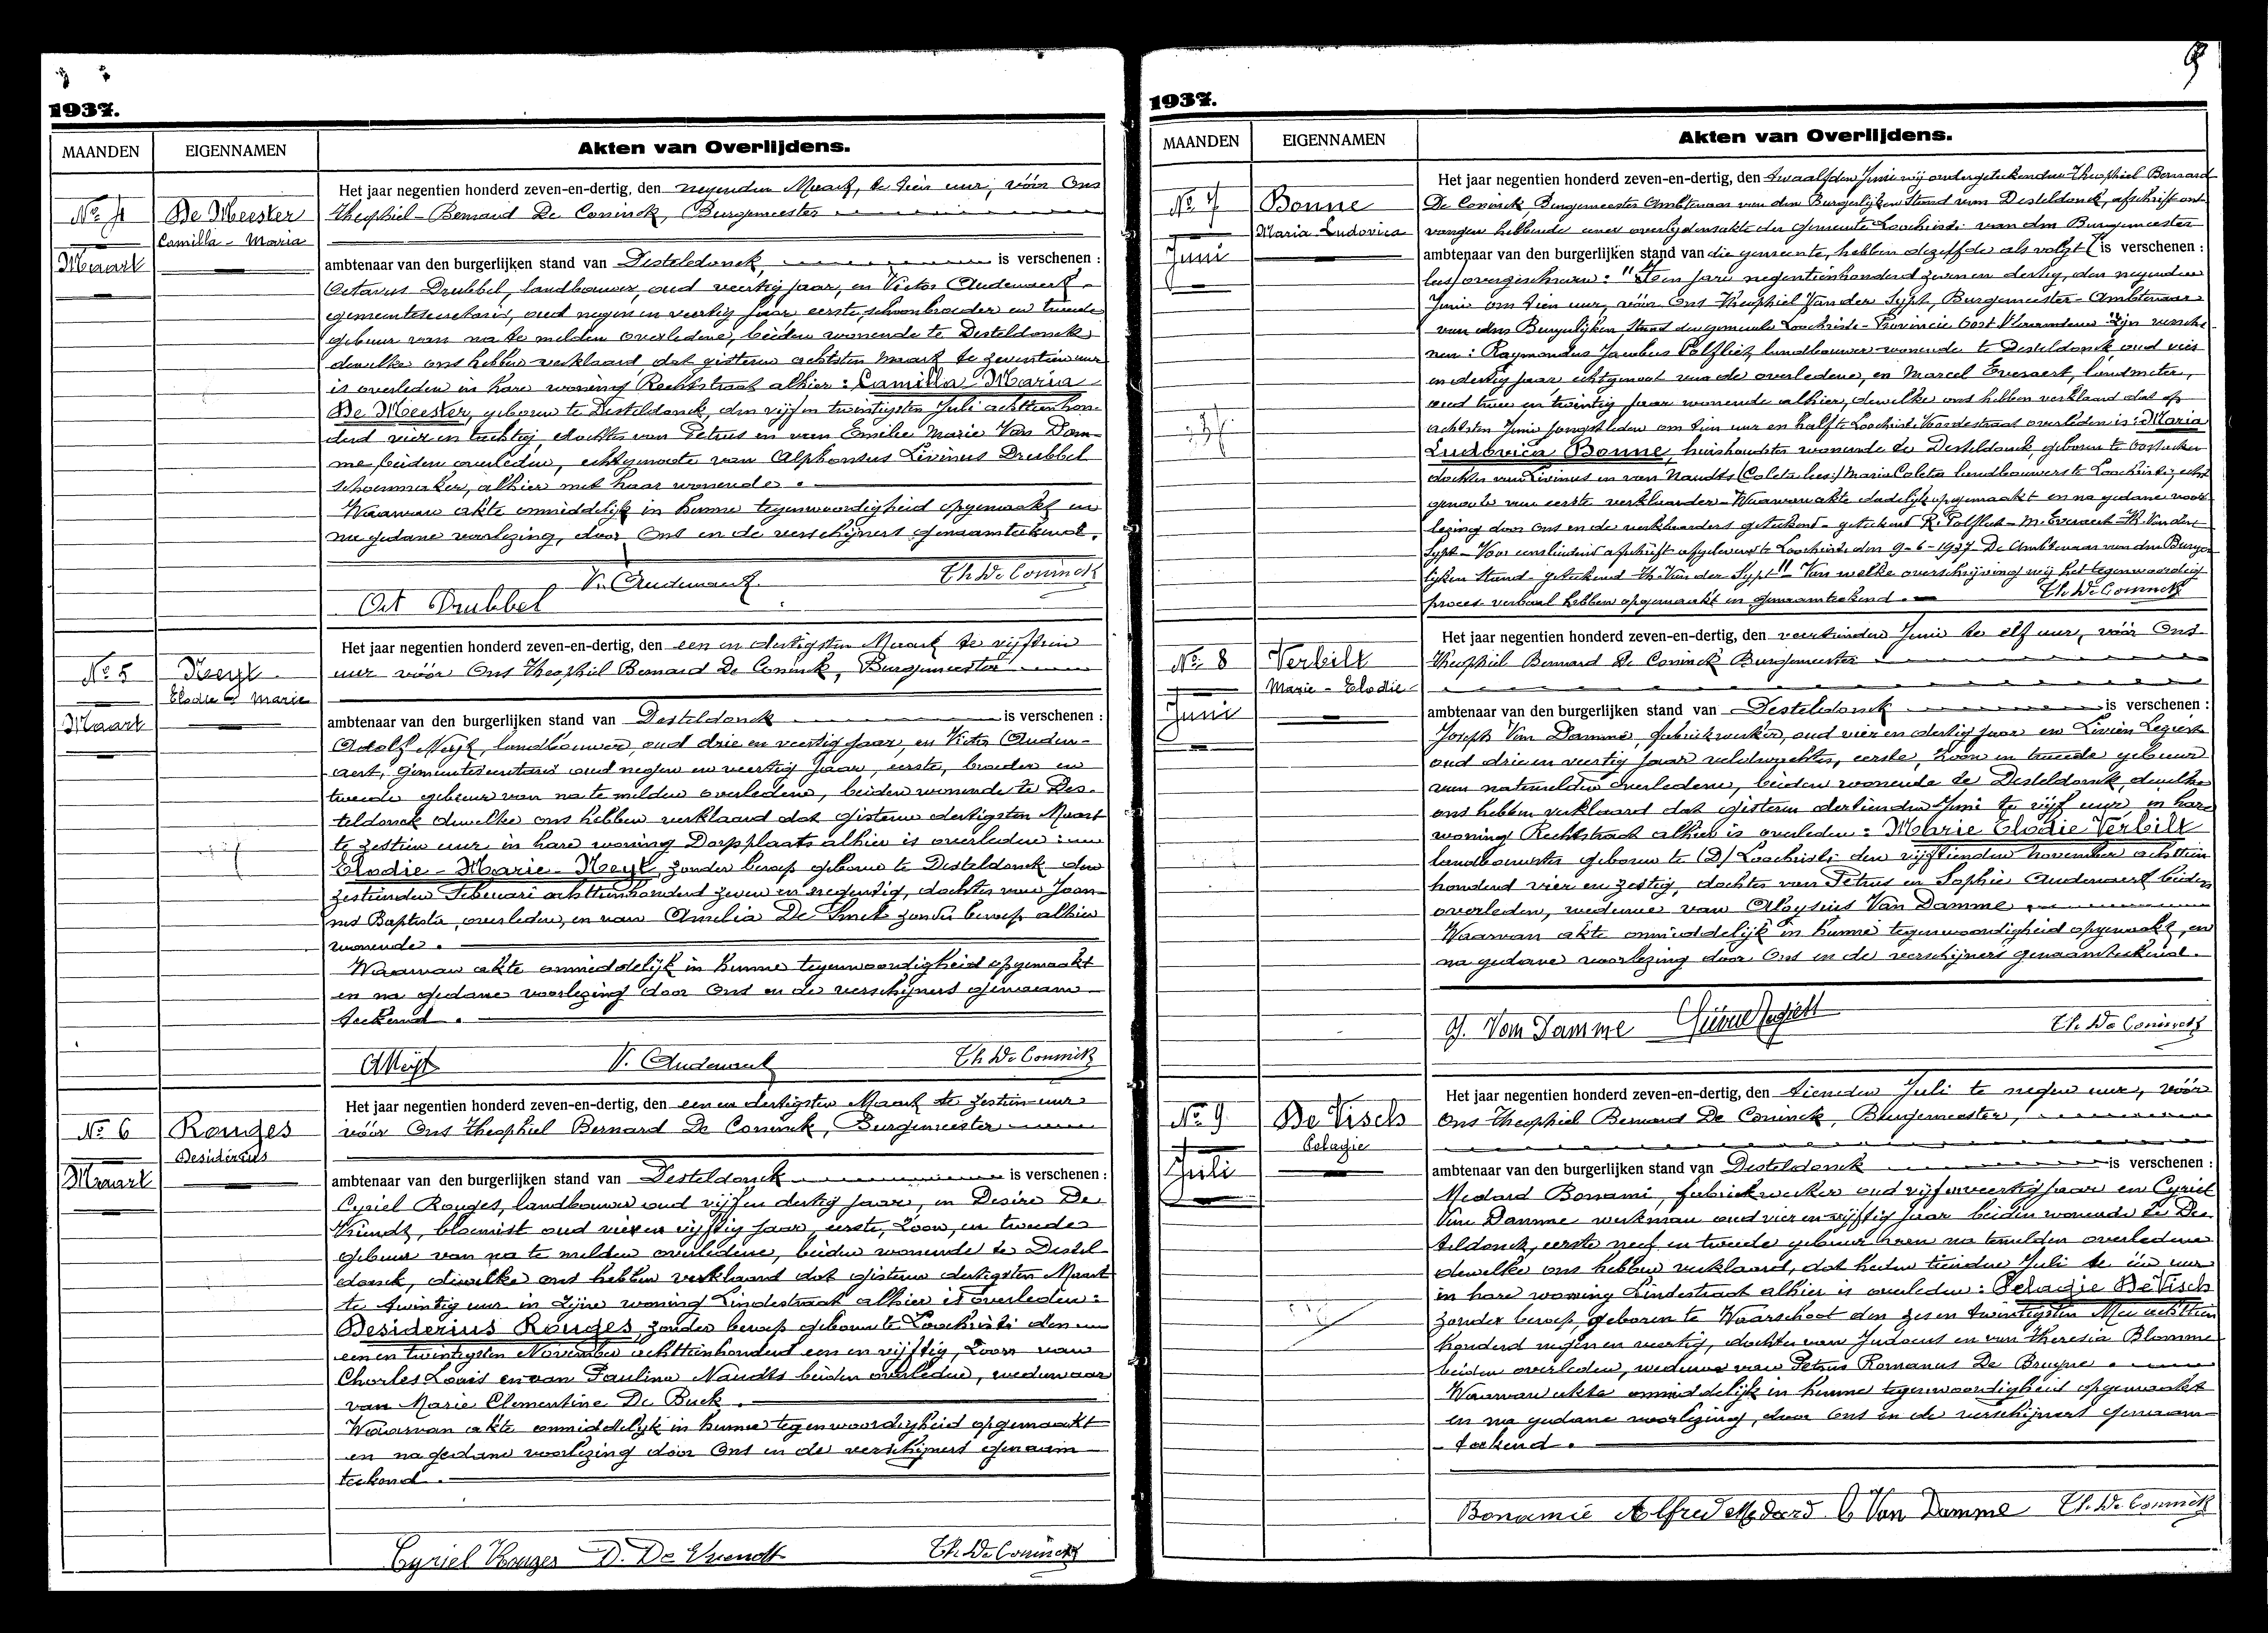 1937.
MAANDEN EIGENNAMEN Akten van Overlijdens.
Het jaar negentien honderd zeven-en-dertig, den negenden Maart, te tien uur, vóór Ons
No 4 De Meester Theophiel-Bernard De Coninck, Burgemeester
Camilla - Maria
Maart ambtenaar van den burgerlijken stand van Desteldonck, is verschenen :
Octavus Drubbel, landbouwer, oud veertig jaar, en Victor Audenaert
gemeentesecretaris, oud negen en veertig jaar eerste schoonbroeder en tweede
gebuur van na te melden overledene, beiden wonende te Desteldonck
dewelke ons hebben verklaard dat gisteren achtsten Maart te zeventien uur
is overleden in hare woning Rechtstraat alhier : Camilla-Maria
De Meester, geboren te Desteldonck, den vijf en twintigsten Juli achttienhon-
derd vier en tachtig, dochter van Petrus en van Emilie Marie Van Dam-
me, beiden overleden, echtgenoote van Alphonsus Livinus Drubbel
schoenmaker, alhier met haar wonende.
Waarvan akte onmiddelijk in hunne tegenwoordigheid opgemaakt en
na gedane voorlezing, door Ons en de verschijners genaamteekend.
Oct Drubbel V. Audenaert Th De Coninck
Het jaar negentien honderd zeven-en-dertig, den een en dertigsten Maart te vijftien
No 5 Neyt uur vóór Ons Theophiel Bernard De Coninck, Burgemeester
Elodie - Marie
Maart ambtenaar van den burgerlijken stand van Desteldonck is verschenen :
Adolf Neyt, landbouwer, oud drie en veertig jaar, en Victor Auden-
aert, gemeentesecretaris oud negen en veertig jaar, eerste, broeder en
tweede gebuur van na te melden overledene, beiden wonende te Des-
teldonck dewelke ons hebben verklaard dat gisteren dertigsten Maart
te zestien uur in hare woning Dorpplaats alhier is overleden :
Elodie - Marie - Neyt, zonder beroep geboren te Desteldonck den
zestienden Februari achttienhonderd zeven en negentig, dochter van Joan-
nes Baptista, overleden, en van Amelia De Smet zonder beroep alhier
wonende.
Waarvan akte onmiddelijk in hunne tegenwoordigheid opgemaakt
en na gedane voorlezing door Ons en de verschijners genaam-
teekend.
A Neyt V. Audenaert Th De Coninck
Het jaar negentien honderd zeven-en-dertig, den een en dertigsten Maart te zestien uur
No 6 Rouges vóór Ons Theophiel Bernard De Coninck, Burgemeester
Desiderius
Maart ambtenaar van den burgerlijken stand van Desteldonck is verschenen :
Cyriel Rouges, landbouwer oud vijf en dertig jaar, en Desiré De
Vriendt, bloemist oud vier en vijftig jaar, eerste, zoon, en tweede
gebuur van na te melden overledene, beiden wonende te Destel-
donck, dewelke ons hebben verklaard dat gisteren dertigsten Maart
te twintig uur in zijne woning Lindestraat alhier is overleden :
Desiderius Rouges, zonder beroep geboren te Loochristi den
een en twintigsten November achttienhonderd een en vijftig, zoon van
Charles Louis en van Paulina Naudts beiden overleden, weduwaar
van Marie Clementine De Buck.
Waarvan akte onmiddelijk in hunne tegenwoordigheid opgemaakt
en na gedane voorlezing door Ons en de verschijners genaam-
teekend.
Cyriel Rouges D. De Vriendt Th De Coninck
9
1937.
MAANDEN EIGENNAMEN Akten van Overlijdens.
Het jaar negentien honderd zeven-en-dertig, den twaalfden Juni wij ondergeteekenden Theophiel Bernard
No 7 Bonne De Coninck, Burgemeester Ambtenaar van den Burgerlijken Stand van Desteldonck, afschrift ont-
Maria Ludovica vangen hebbende eener overlijdensakte der gemeente Loochristi van den Burgemeester
Juni ambtenaar van den burgerlijken stand van die gemeente, hebben dezelfde als volgt is verschenen :
lees) overgeschreven : "Ten jare negentienhonderd zeven en dertig, den negenden
Juni om tien uur, vóór Ons Theophiel Van der Sypt, Burgemeester-Ambtenaar
van den Burgerlijken Stand der gemeente Loochristi-Provincie Oost Vlaanderen Zijn versche-
nen : Raymondus Jacobus Polfliet landbouwer wonende te Desteldonck oud vier
en dertig jaar, echtgenoot van de overledene, en Marcel Everaert, landmeter,
oud twee en twintig jaar wonende alhier, dewelke ons hebben verklaard dat op
achtsten Juni jongstleden om tien uur en half te Loochristi is overleden is : Maria
Ludovica Bonne, huishoudster wonende te Desteldonck, geboren te Oostacker
dochter van Livinus en van Naudts (Coleta lees) Maria Coleta landbouwerste Loochristi, echt-
genoote van eerste verklaarder - Waarvan akte dadelijk opgemaakt en na gedane voor-
lezing door ons en de verklaarders geteekend - geteekend R. Polfliet - M. Everaert - Th. Van der
Sypt - Voor eensluidend afschrift afgeleverd te Loochristi den 9-6-1937 De Ambtenaar van den Burger-
lijken Stand - geteekend Th. Van der Sypt" Van welke overschrijving wij het tegenwoordig
proces verbaal hebben opgemaakt en genaamteekend. Th De Coninck
Het jaar negentien honderd zeven-en-dertig, den veertienden Juni te elf uur, vóór Ons
No 8 Verbilt Theophiel Bernard De Coninck Burgemeester
Marie - Elodie
Juni ambtenaar van den burgerlijken stand van Desteldonck is verschenen :
Joseph Van Damme, fabriekwerker, oud vier en dertig jaar en Livien Legiest
oud drie en veertig jaar veldwachter, eerste, zoon en tweede gebuur
van natemelden overledene, beiden wonende te Desteldonck, dewelke
ons hebben verklaard dat gisteren dertienden Juni te vijf uur, in hare
woning Rechtstraat alhier is overleden : Marie Elodie Verbilt
landbouwster geboren te (D) Loochristi den vijftienden November achttien
honderd vier en zestig, dochter van Petrus en Sophie Audenaert beiden
overleden, weduwe van Aloysius Van Damme
Waarvan akte onmiddelijk in hunne tegenwoordigheid opgemaakt, en
na gedane voorlezing door Ons en de verschijners genaamteekend.
J. Van Damme Th. De Coninck
Het jaar negentien honderd zeven-en-dertig, den tienden Juli te negen uur, vóór
No 9 De Visch Ons Theophiel Bernard De Coninck, Burgemeester,
Pelagie
Juli ambtenaar van den burgerlijken stand van Desteldonck is verschenen :
Medard Bonami, fabriekwerker oud vijf en veertig jaar en Cyriel
Van Damme werkman oud vier en vijftig jaar beiden wonende te Des-
teldonck, eerste neef en tweede gebuur van na temelden overledene
dewelke ons hebben verklaard, dat heden tienden Juli te één uur
in hare woning Lindestraat alhier is overleden : Pelagie De Visch
zonder beroep, geboren te Waarschoot den zes en twintigsten Mei achttien
honderd negen en veertig, dochter van Judocus en van Theresia Blomme
beiden overleden, weduwe van Petrus Romanus De Bruyne.
Waarvan akte onmiddelijk in hunne tegenwoordigheid opgemaakt
en na gedane voorlezing, door Ons en de verschijners genaam-
teekend.
Bonamie Alfred Medard C Van Damme Th. De Coninck